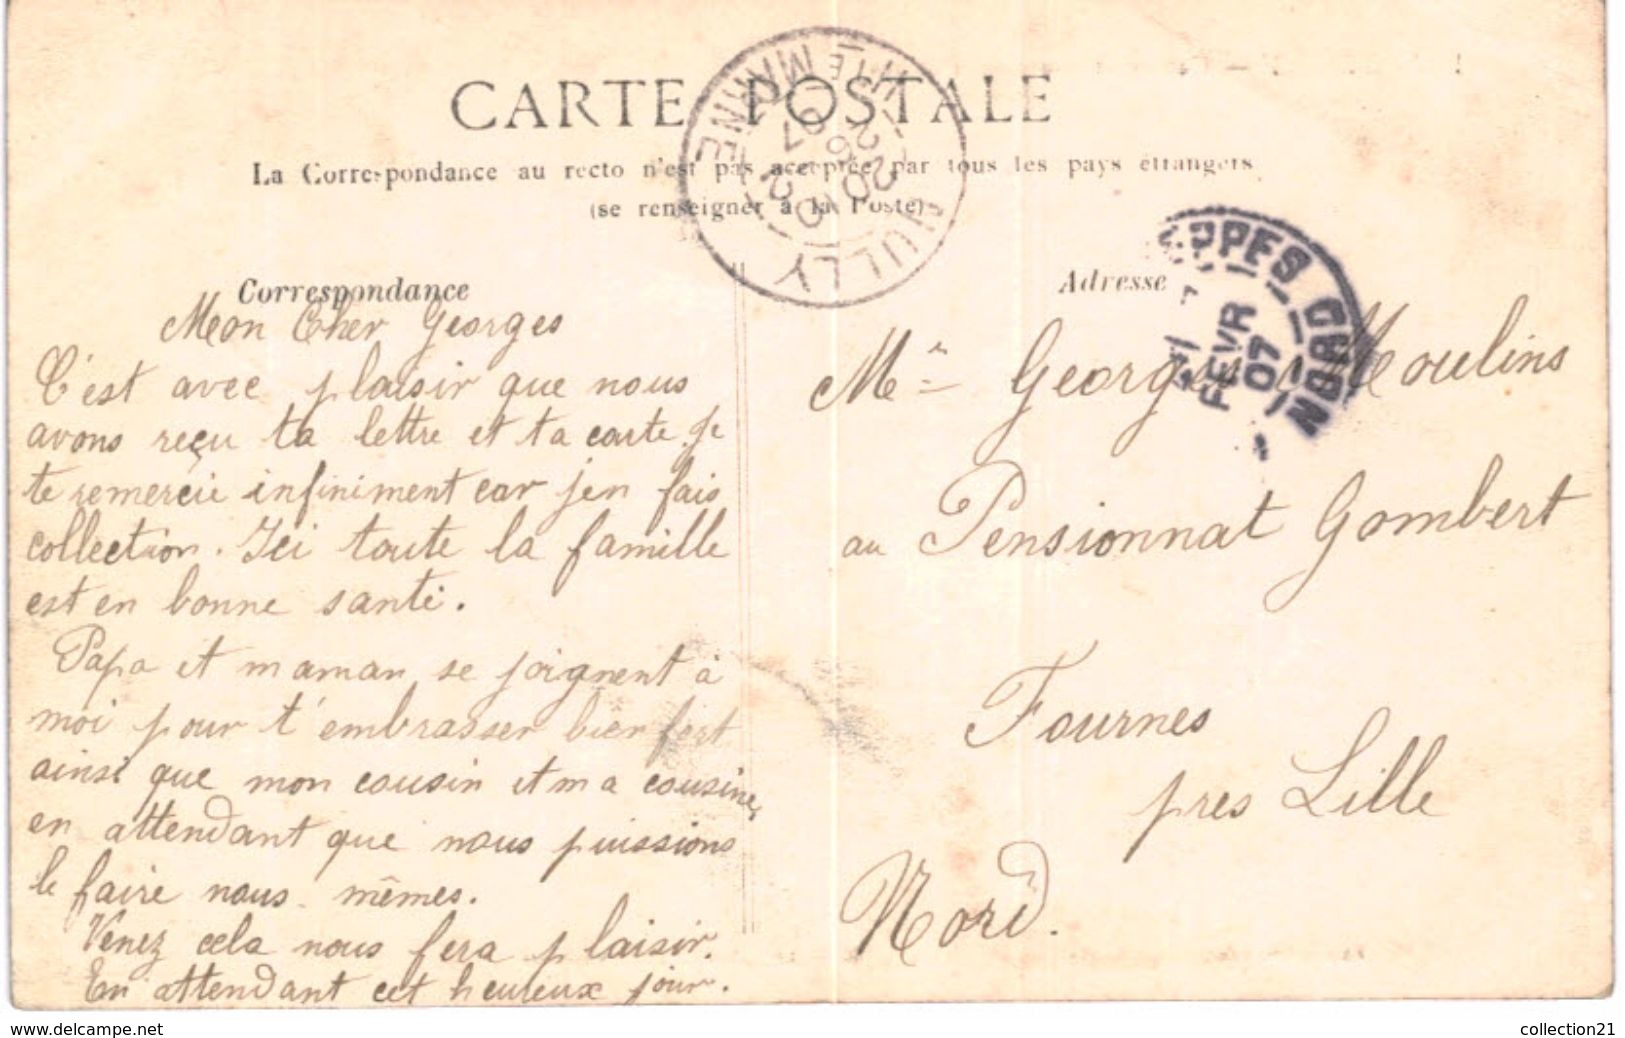 CARTE POSTALE
La Correspondance au recto n'est pas acceptée par tous les pays étrangers
(se renseigner à la Poste)
NULLY
HTE MARNE
20
26
2
07
Correspondance
Mon Cher Georges
C'est avec plaisir que nous
avons reçu ta lettre et ta carte je
te remercie infiniment car j'en fais
collection. Ici toute la famille
est en bonne santé.
Papa et maman se joignent à
moi pour t'embrasser bien fort
ainsi que mon cousin et ma cousine,
en attendant que nous puissions
le faire nous mêmes.
Venez cela nous fera plaisir.
En attendant cet heureux jour.
Adresse
PPES NORD
FEVR
07
Mr Georges Moulins
au Pensionnat Gombert
Fournes
près Lille
Nord.
www.delcampe.net
collection21